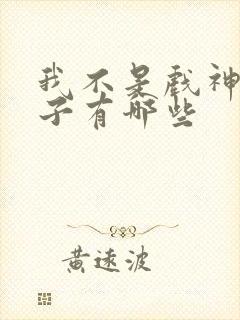 我不是戏神
子有哪些
黄远波